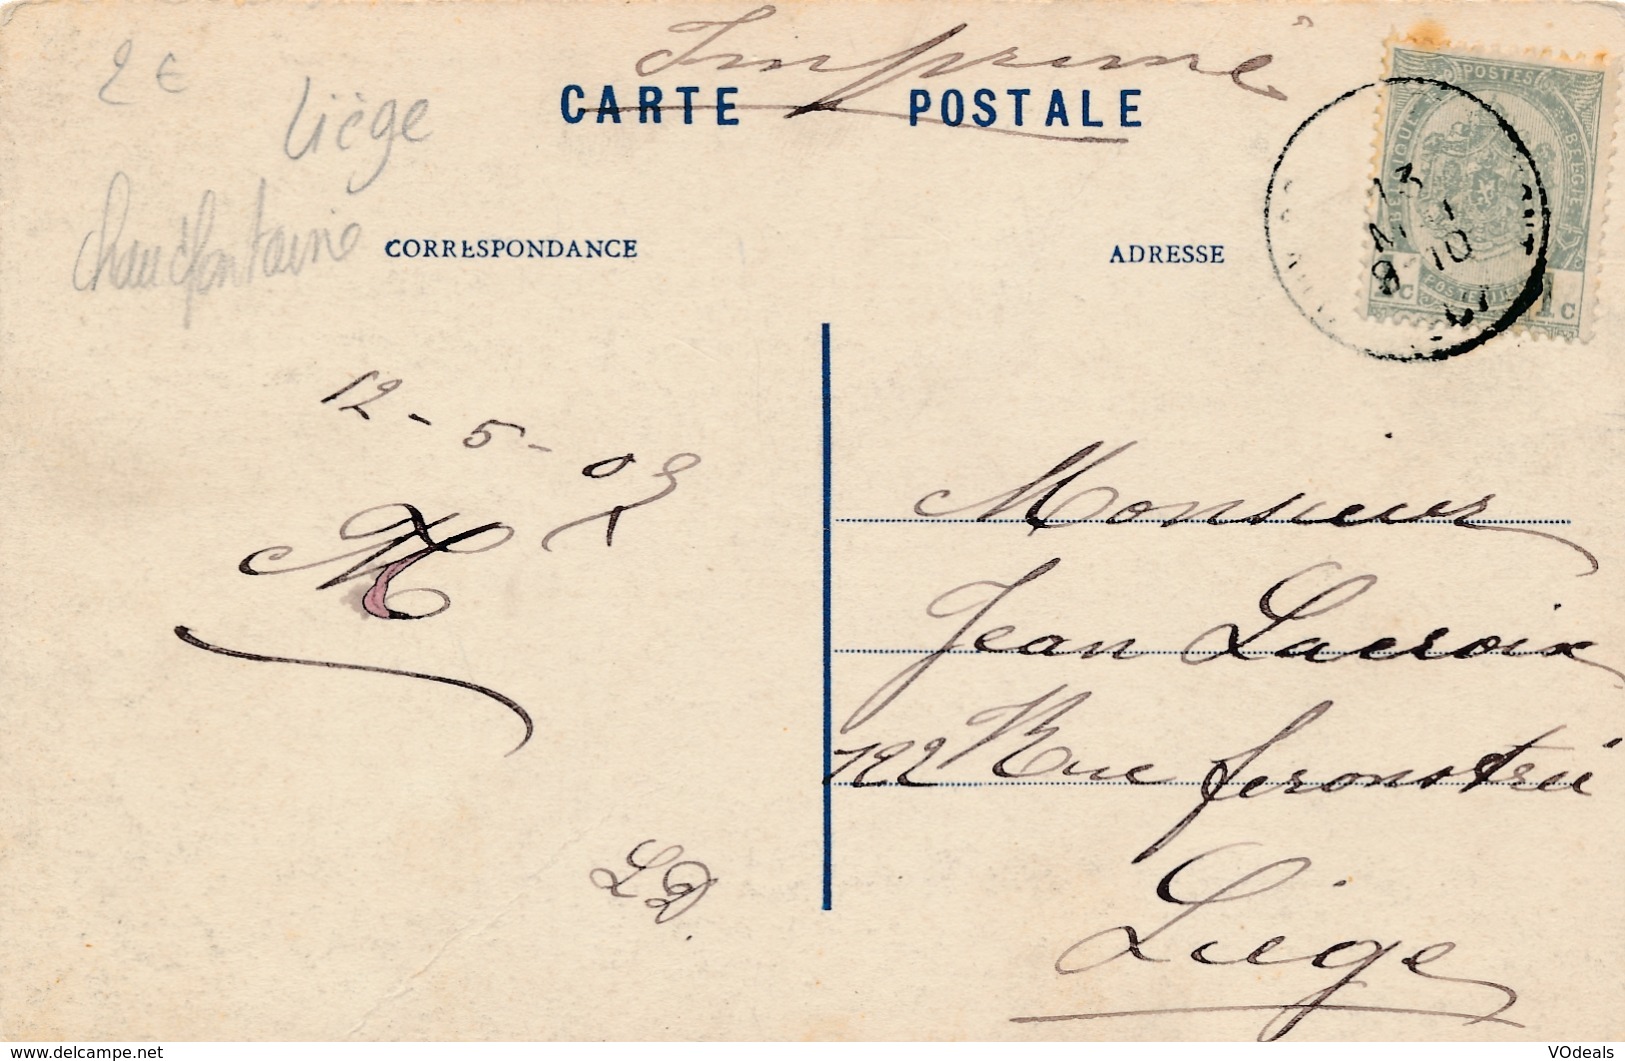 Imprimé
2€
Liège
Chaudfontaine
CARTE POSTALE
CORRESPONDANCE
ADRESSE
POSTES
BELGIQUE
1c
1c
13
8-10
12-5-09
M
LD.
Monsieur
Jean Lacroix
122 Rue feronstréé
Liège
www.delcampe.net
VOdeals